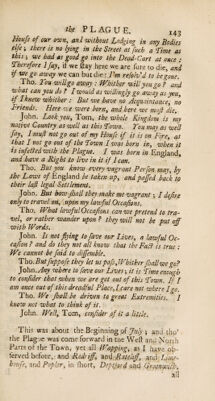 the PLAGUE. 143
House of our own, and without Lodging in any Bodies
else; there is no lying in the Street at such a Time as
this; we had as good go into the Dead-Cart at once:
Therefore I say, if we stay here we are sure to die, and
if we go away we can but die: I'm resolv'd to be gone.
Tho. You will go away: Whither will you go? and
what can you do? I would as willingly go away as you,
if I knew whither: But we have no Acquaintance, no
Friends. Here we were born, and here we must die.
John. Look you, Tom, the whole Kingdom is my
native Country as well as this Town. You may as well
say, I must not go out of my House if it is on Fire, as
that I must not go out of the Town I was born in, when it
is infected with the Plague. I was born in England,
and have a Right to live in it if I can.
Tho. But you know every vagrant Person may, by
the Laws of England be taken up, and passed back to
their last legal Settlement.
John. But how shall they make me vagrant; I desire
only to travel on, upon my lawful Occasions.
Tho. What lawful Occasions can we pretend to tra-
vel, or rather wander upon? they will not be put off
with Words.
John. Is not flying to save our Lives, a lawful Oc-
casion? and do they not all know that the Fact is true:
We cannot be said to dissemble.
Tho. But suppose they let us pass, Whither shall we go?
John. Any where to save our Lives; it is Time enough
to consider that when we are got out of this Town. If I
am once out of this dreadful Place, I care not where I go.
Tho. We shall be driven to great Extremities. I
know not what to think of it.
John. Well, Tom, consider of it a little.
This was about the Beginning of July; and tho'
the Plague was come forward in the West and North
Parts of the Town, yet all Wapping, as I have ob-
served before, and Redriff, and Ratcliff, and Lime-
house, and Poplar, in short, Deptford and Greenwich,
all